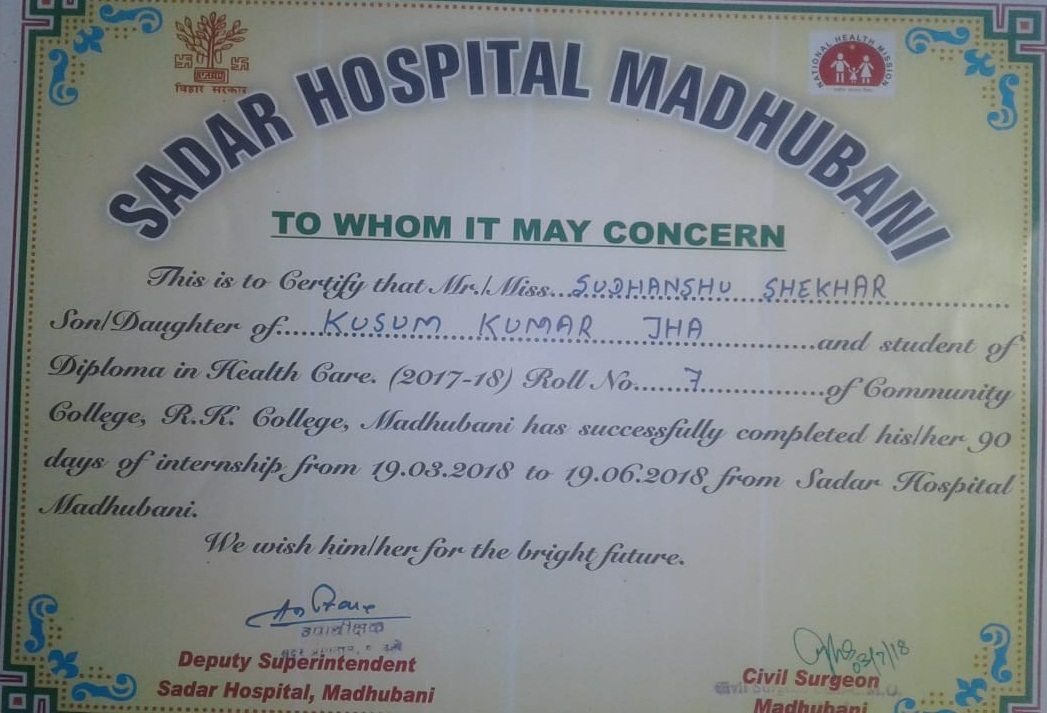 बिहार सरकार
NATIONAL HEALTH MISSION
SADAR HOSPITAL MADHUBANI
TO WHOM IT MAY CONCERN
This is to Certify that Mr./Miss...SUDHANSHU SHEKHAR
Son/Daughter of.....KUSUM KUMAR JHA..........and student of
Diploma in Health Care. (2017-18) Roll No......7............of Community
College, R.K. College, Madhubani has successfully completed his/her 90
days of internship from 19.03.2018 to 19.06.2018 from Sadar Hospital
Madhubani.
We wish him/her for the bright future.
उपाधीक्षक
03/7/18
Deputy Superintendent
Sadar Hospital, Madhubani
Civil Surgeon
Madhubani